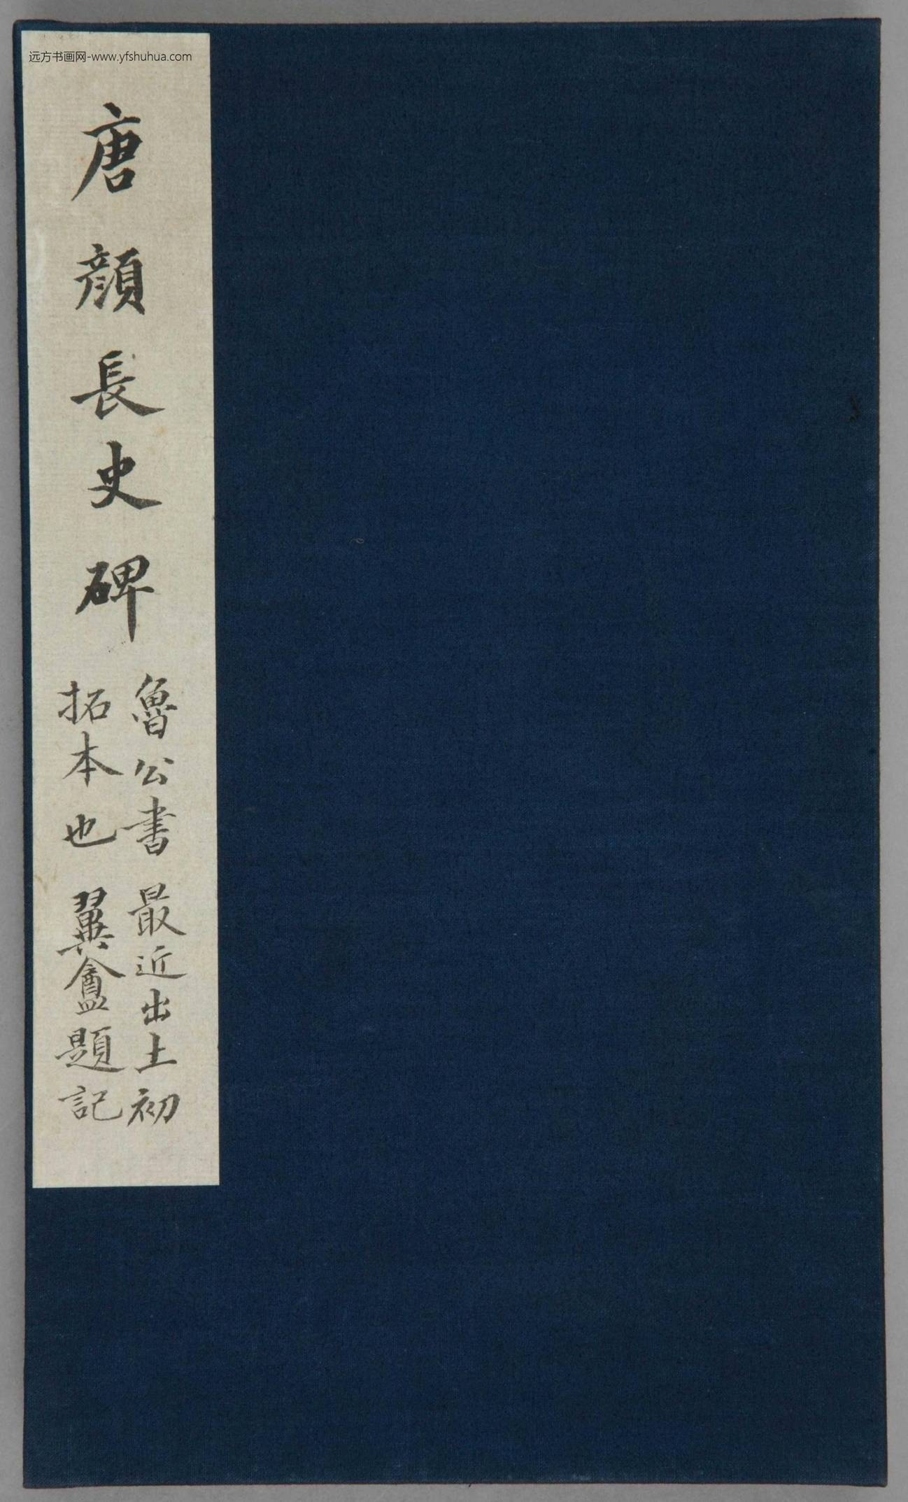 远方书画网-www.yfshuhua.com
唐顔長史碑
魯公書最近出土初
拓本也翼盦題記